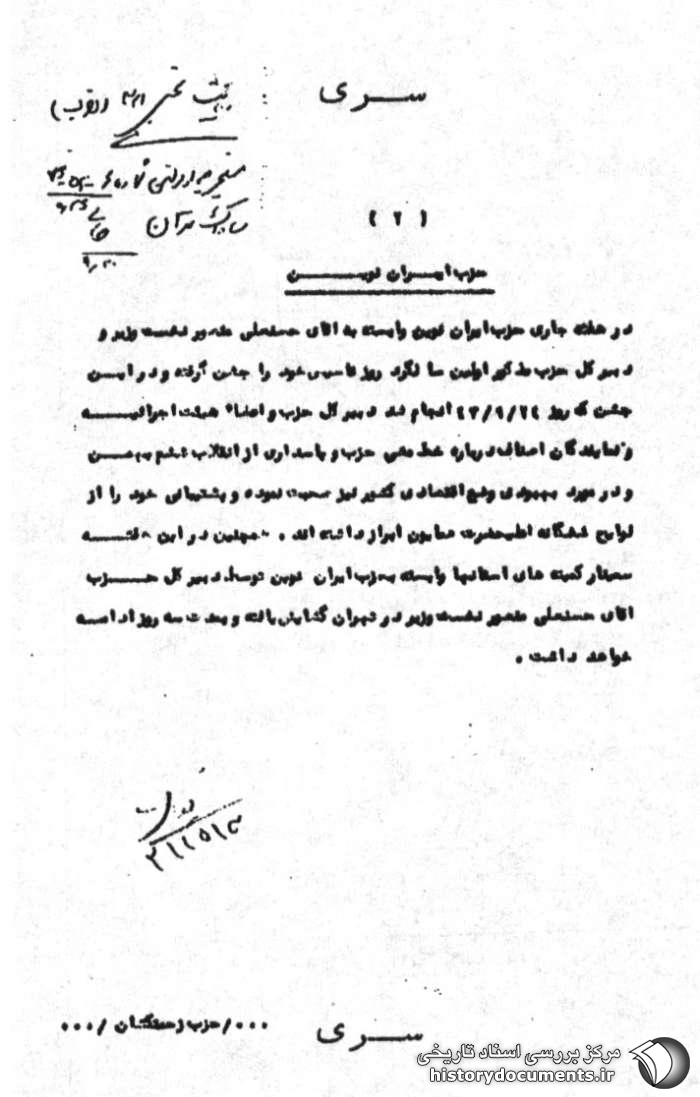 سری
( ۲ )
حزب ایران نوین
در هفته جاری حزب ایران نوین وابسته به آقای حسنعلی منصور نخست وزیر و
دبیر کل حزب مذکور اولین سالگرد روز تاسیس خود را جشن گرفته و در این
جشن که روز ۴۳/۹/۲۴ انجام شد دبیر کل حزب و اعضاء هیئت اجرائیه
و نمایندگان اصناف درباره خط مشی حزب و پاسداری از انقلاب ششم بهمن
و در مورد بهبودی وضع اقتصادی کشور نیز صحبت نموده و پشتیبانی خود را از
لوایح ششگانه اعلیحضرت همایون ابراز داشته اند . همچنین در این هفته
سمینار کمیته های استانها وابسته بحزب ایران نوین توسط دبیر کل حزب
آقای حسنعلی منصور نخست وزیر در تهران گشایش یافته و بمدت سه روز ادامه
خواهد داشت .
۰۰۰/حزب زحمتکشان /۰۰۰
سری
مرکز بررسی اسناد تاریخی
historydocuments.ir